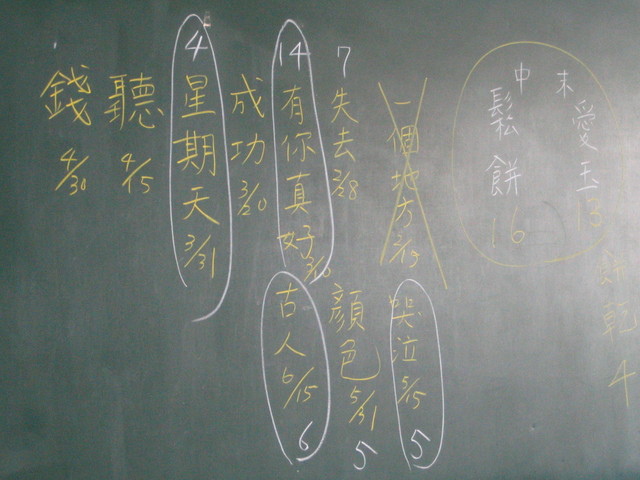 末 愛玉 13
中 鬆餅 16
餅乾 4
一個地方 2/13
7 失去 2/28
14 有你真好 3/10
成功 3/20
4 星期天 3/31
聽 4/15
錢 4/30
哭泣 5/15 5
顏色 5/31 5
古人 6/15 6